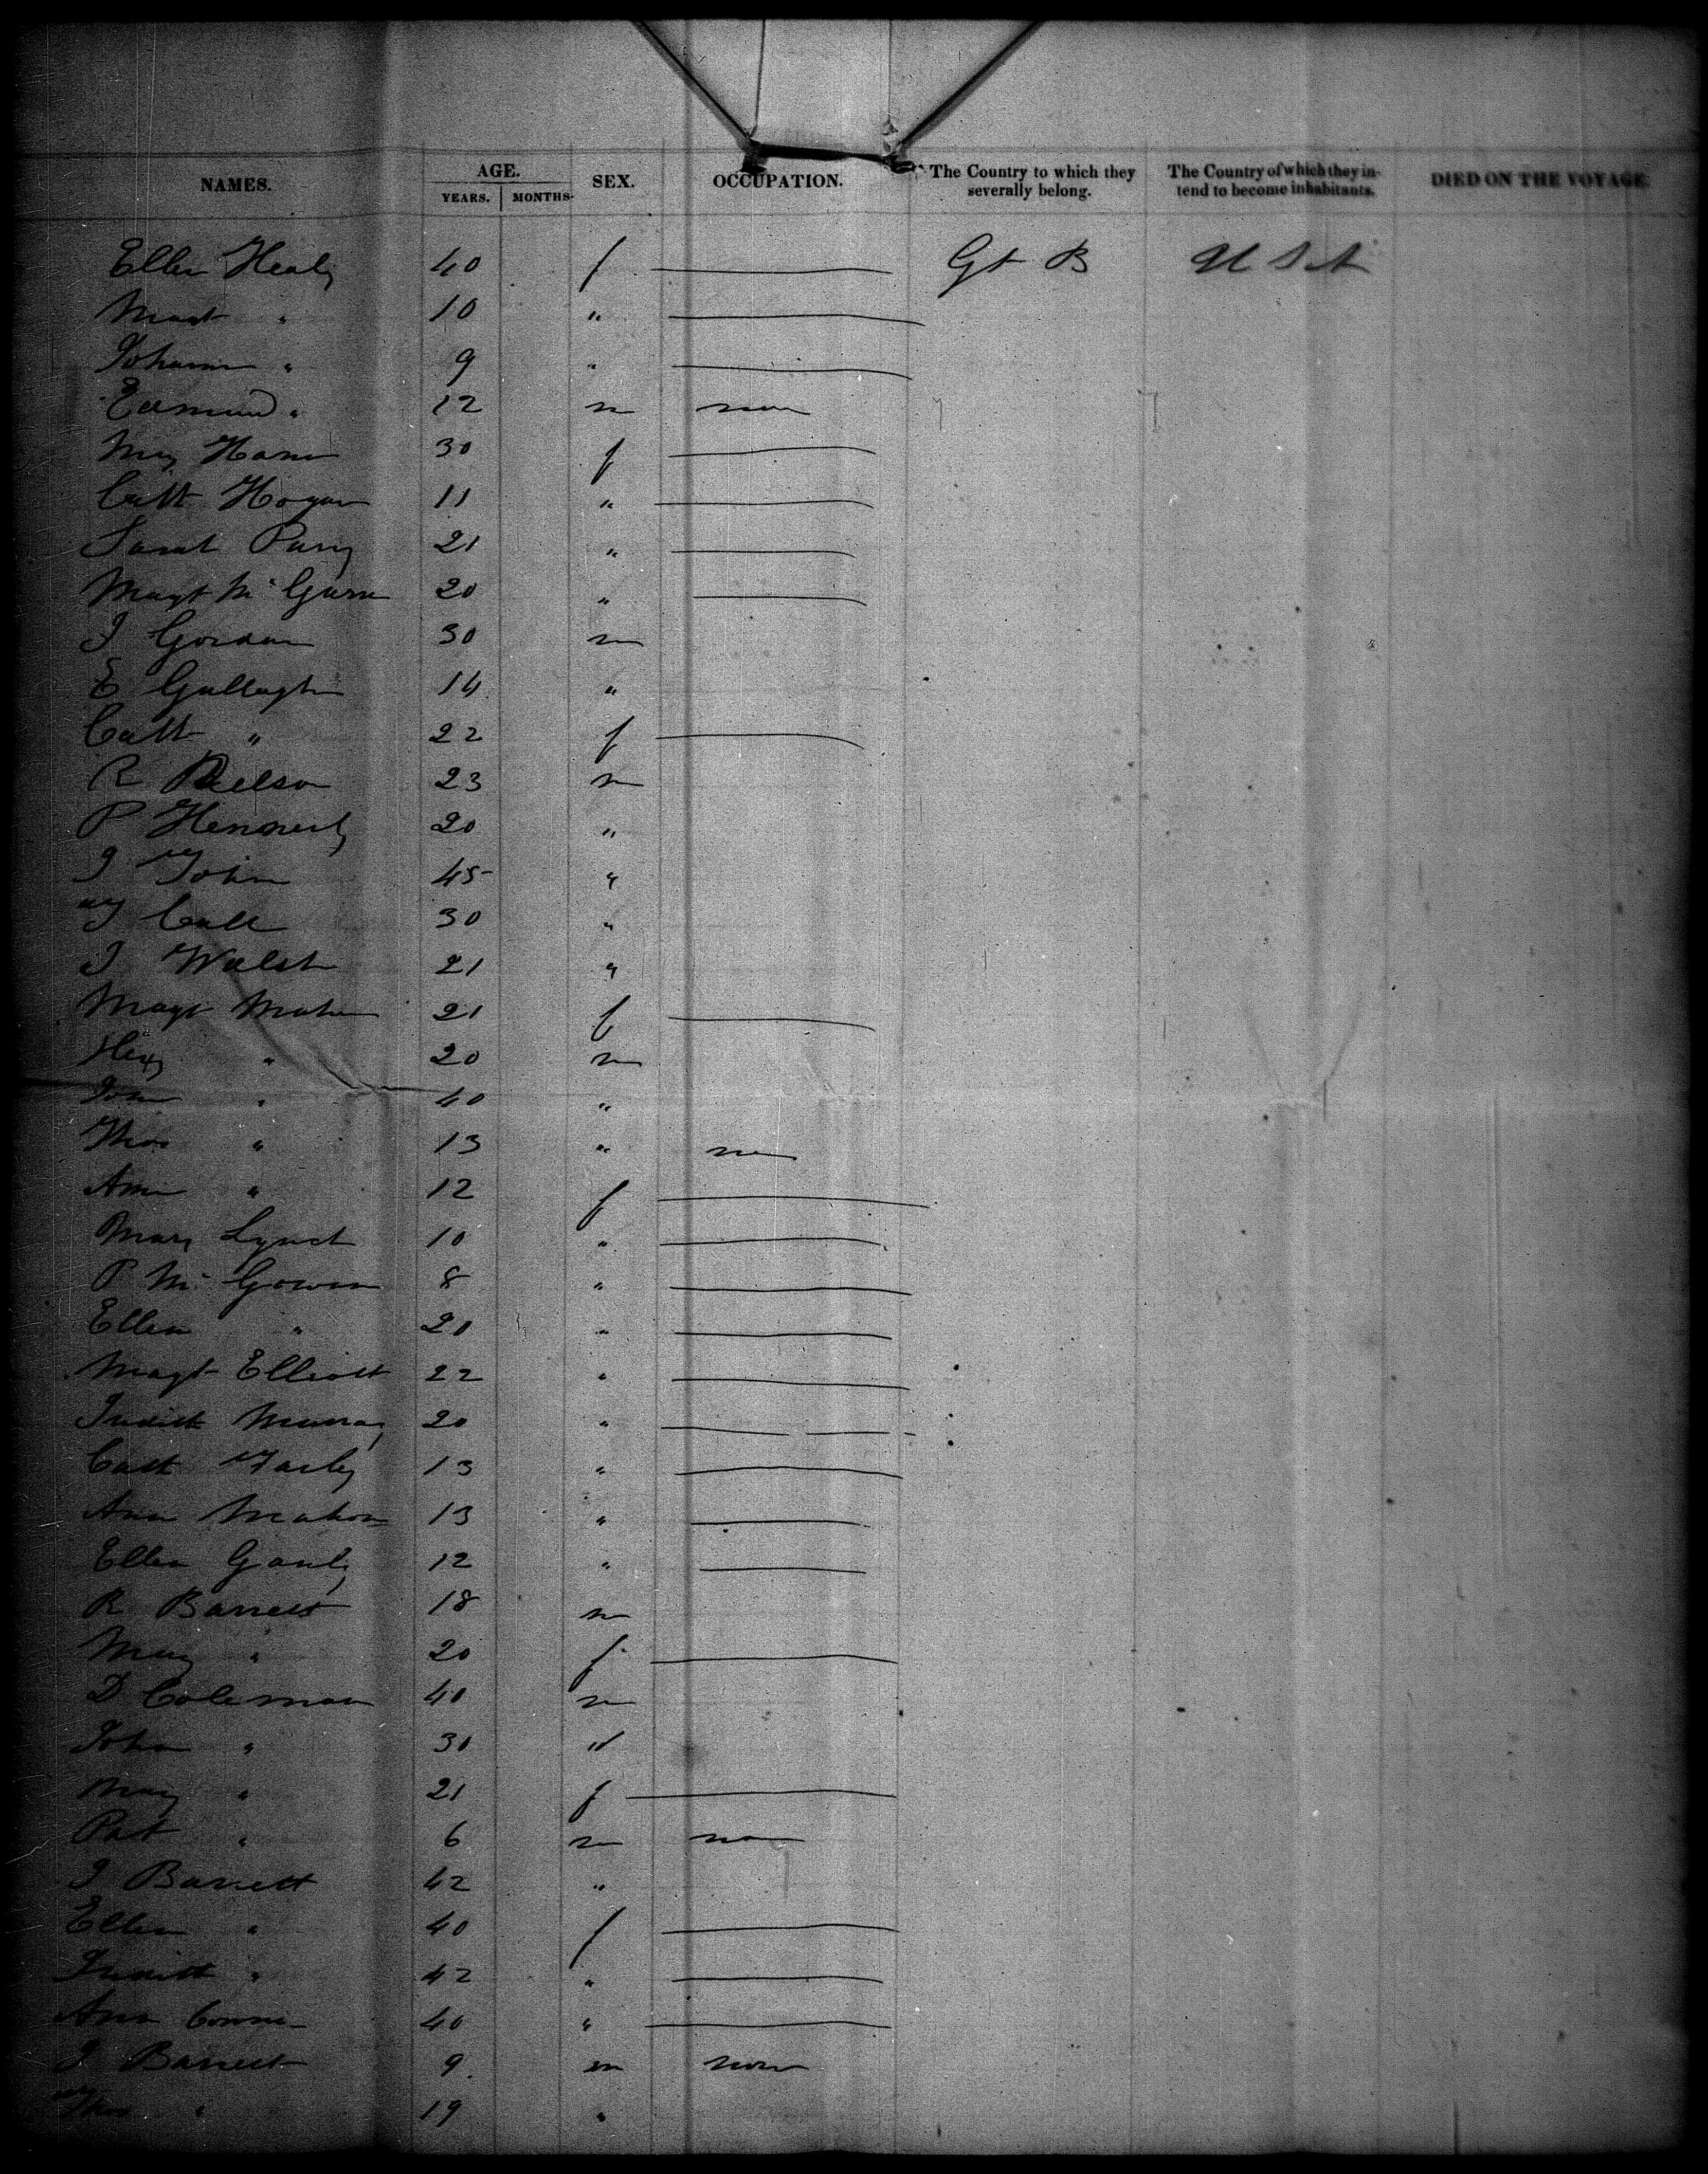 NAMES. AGE. SEX. OCCUPATION. The Country to which they severally belong. The Country of which they intend to become inhabitants. DIED ON THE VOYAGE
YEARS. MONTHS.
Ellen Healy 40 f Gt B U S A
Magt " 10 "
Johanna " 9 "
Edmund " 12 m non
Mary 30 f
Cath Hogan 11 "
Sarah 21 "
Magt Mc 20 "
J Gordan 30 m
E Gallagher 14 "
Cath " 22 f
R 23 m
P Hennesly 20 "
J John 45 "
T Call 30 "
J Walsh 21 "
Magt Maher 21 f
Hey " 20 m
John " 40 "
Thos " 13 " non
Ann " 12 f
Mary Lynch 10 "
P Mc Gowan 8 "
Ellen " 20 "
Magt Elliott 22 "
Judith Murray 20 "
Cath Farley 13 "
Ann Mahon 13 "
Ellen Ganly 12 "
R Barrett 18 m
Mary " 20 f
D Coleman 40 m
John " 30 "
Mary " 21 f
Pat " 6 m non
J Barrett 42 "
Ellen " 40 f
Judith " 42 "
Ann 40 "
J Barrett 9 m non
Thos " 19 "